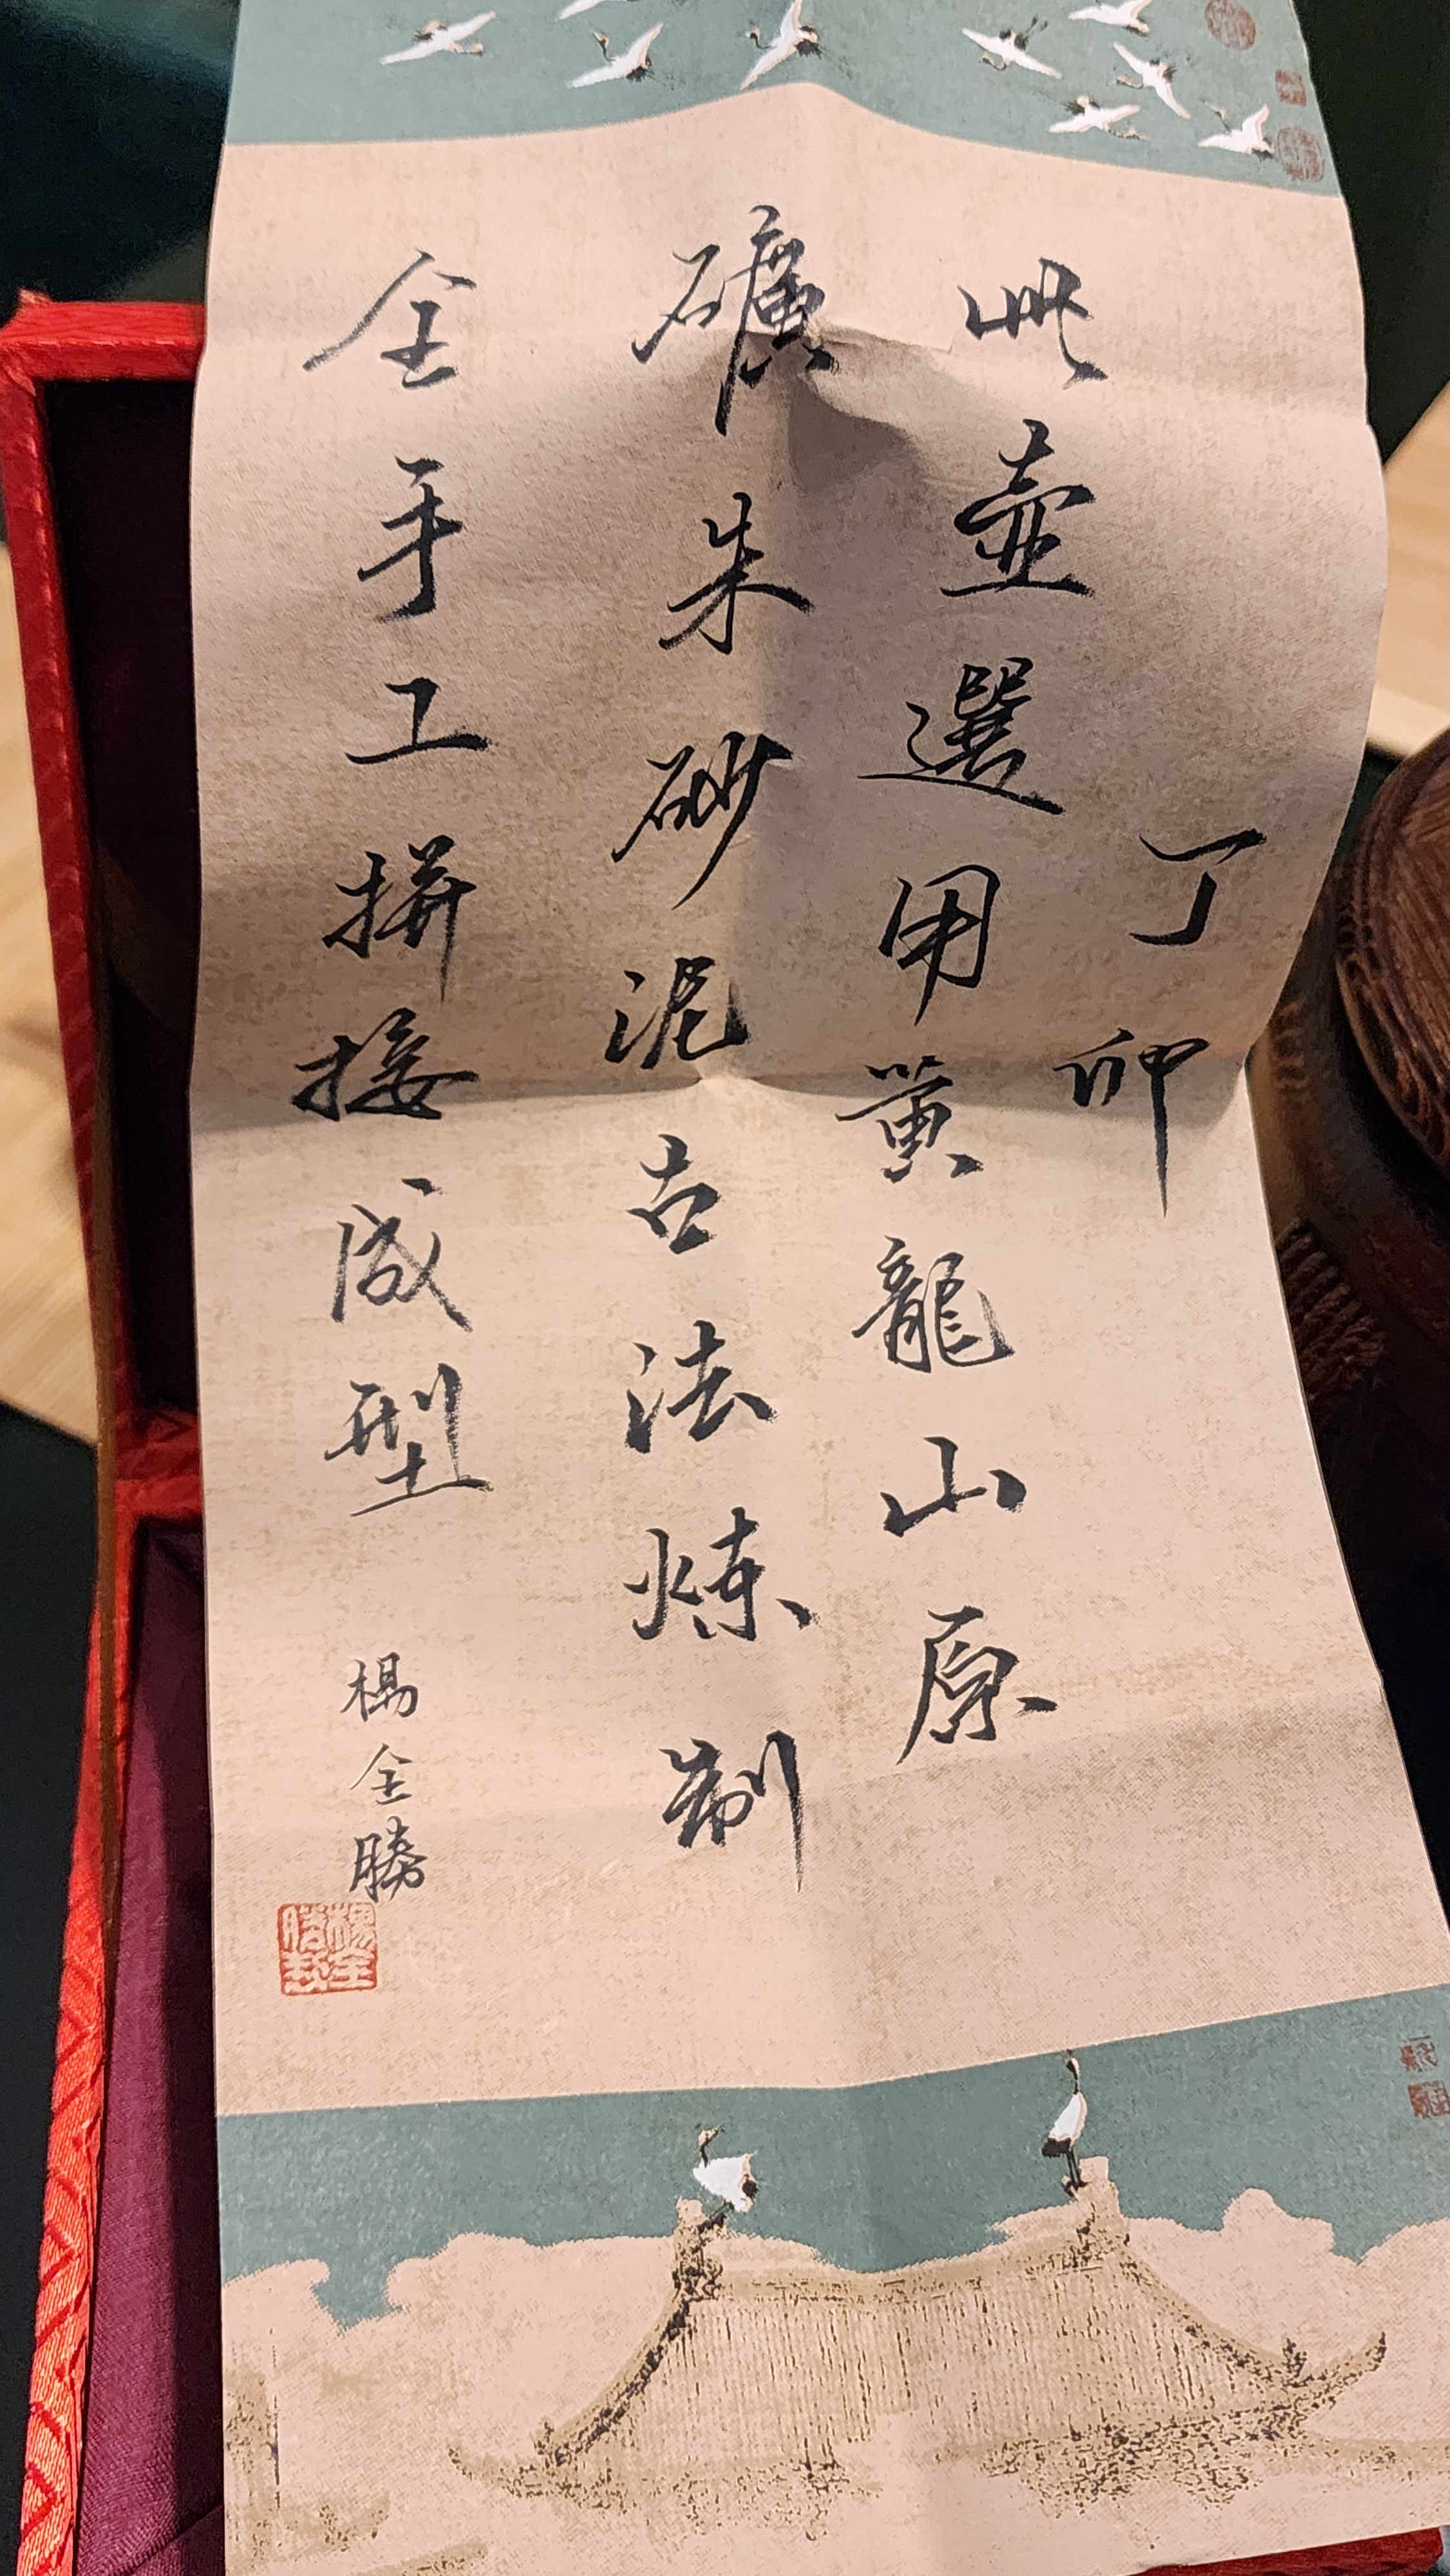 丁卯
此壺選用黄龍山原
礦朱砂泥古法炼制
全手工拼接成型
楊全勝